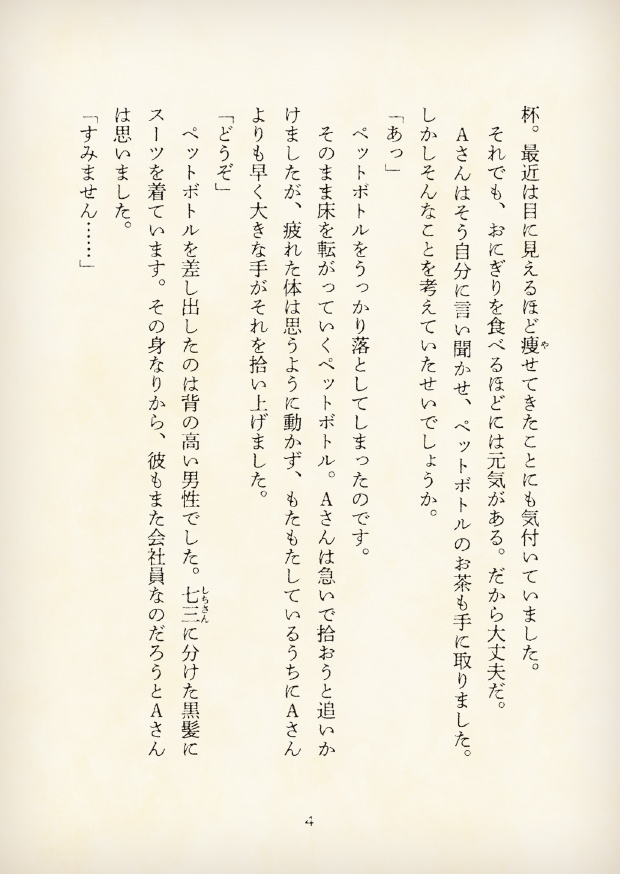 杯。最近は目に見えるほど痩せてきたことにも気付いていました。
や
それでも、おにぎりを食べるほどには元気がある。だから大丈夫だ。
Aさんはそう自分に言い聞かせ、ペットボトルのお茶も手に取りました。
しかしそんなことを考えていたせいでしょうか。
「あっ」
ペットボトルをうっかり落としてしまったのです。
そのまま床を転がっていくペットボトル。Aさんは急いで拾おうと追いか
けましたが、疲れた体は思うように動かず、もたもたしているうちにAさん
よりも早く大きな手がそれを拾い上げました。
「どうぞ」
ペットボトルを差し出したのは背の高い男性でした。七三に分けた黒髪に
しちさん
スーツを着ています。その身なりから、彼もまた会社員なのだろうとAさん
は思いました。
「すみません……」
4